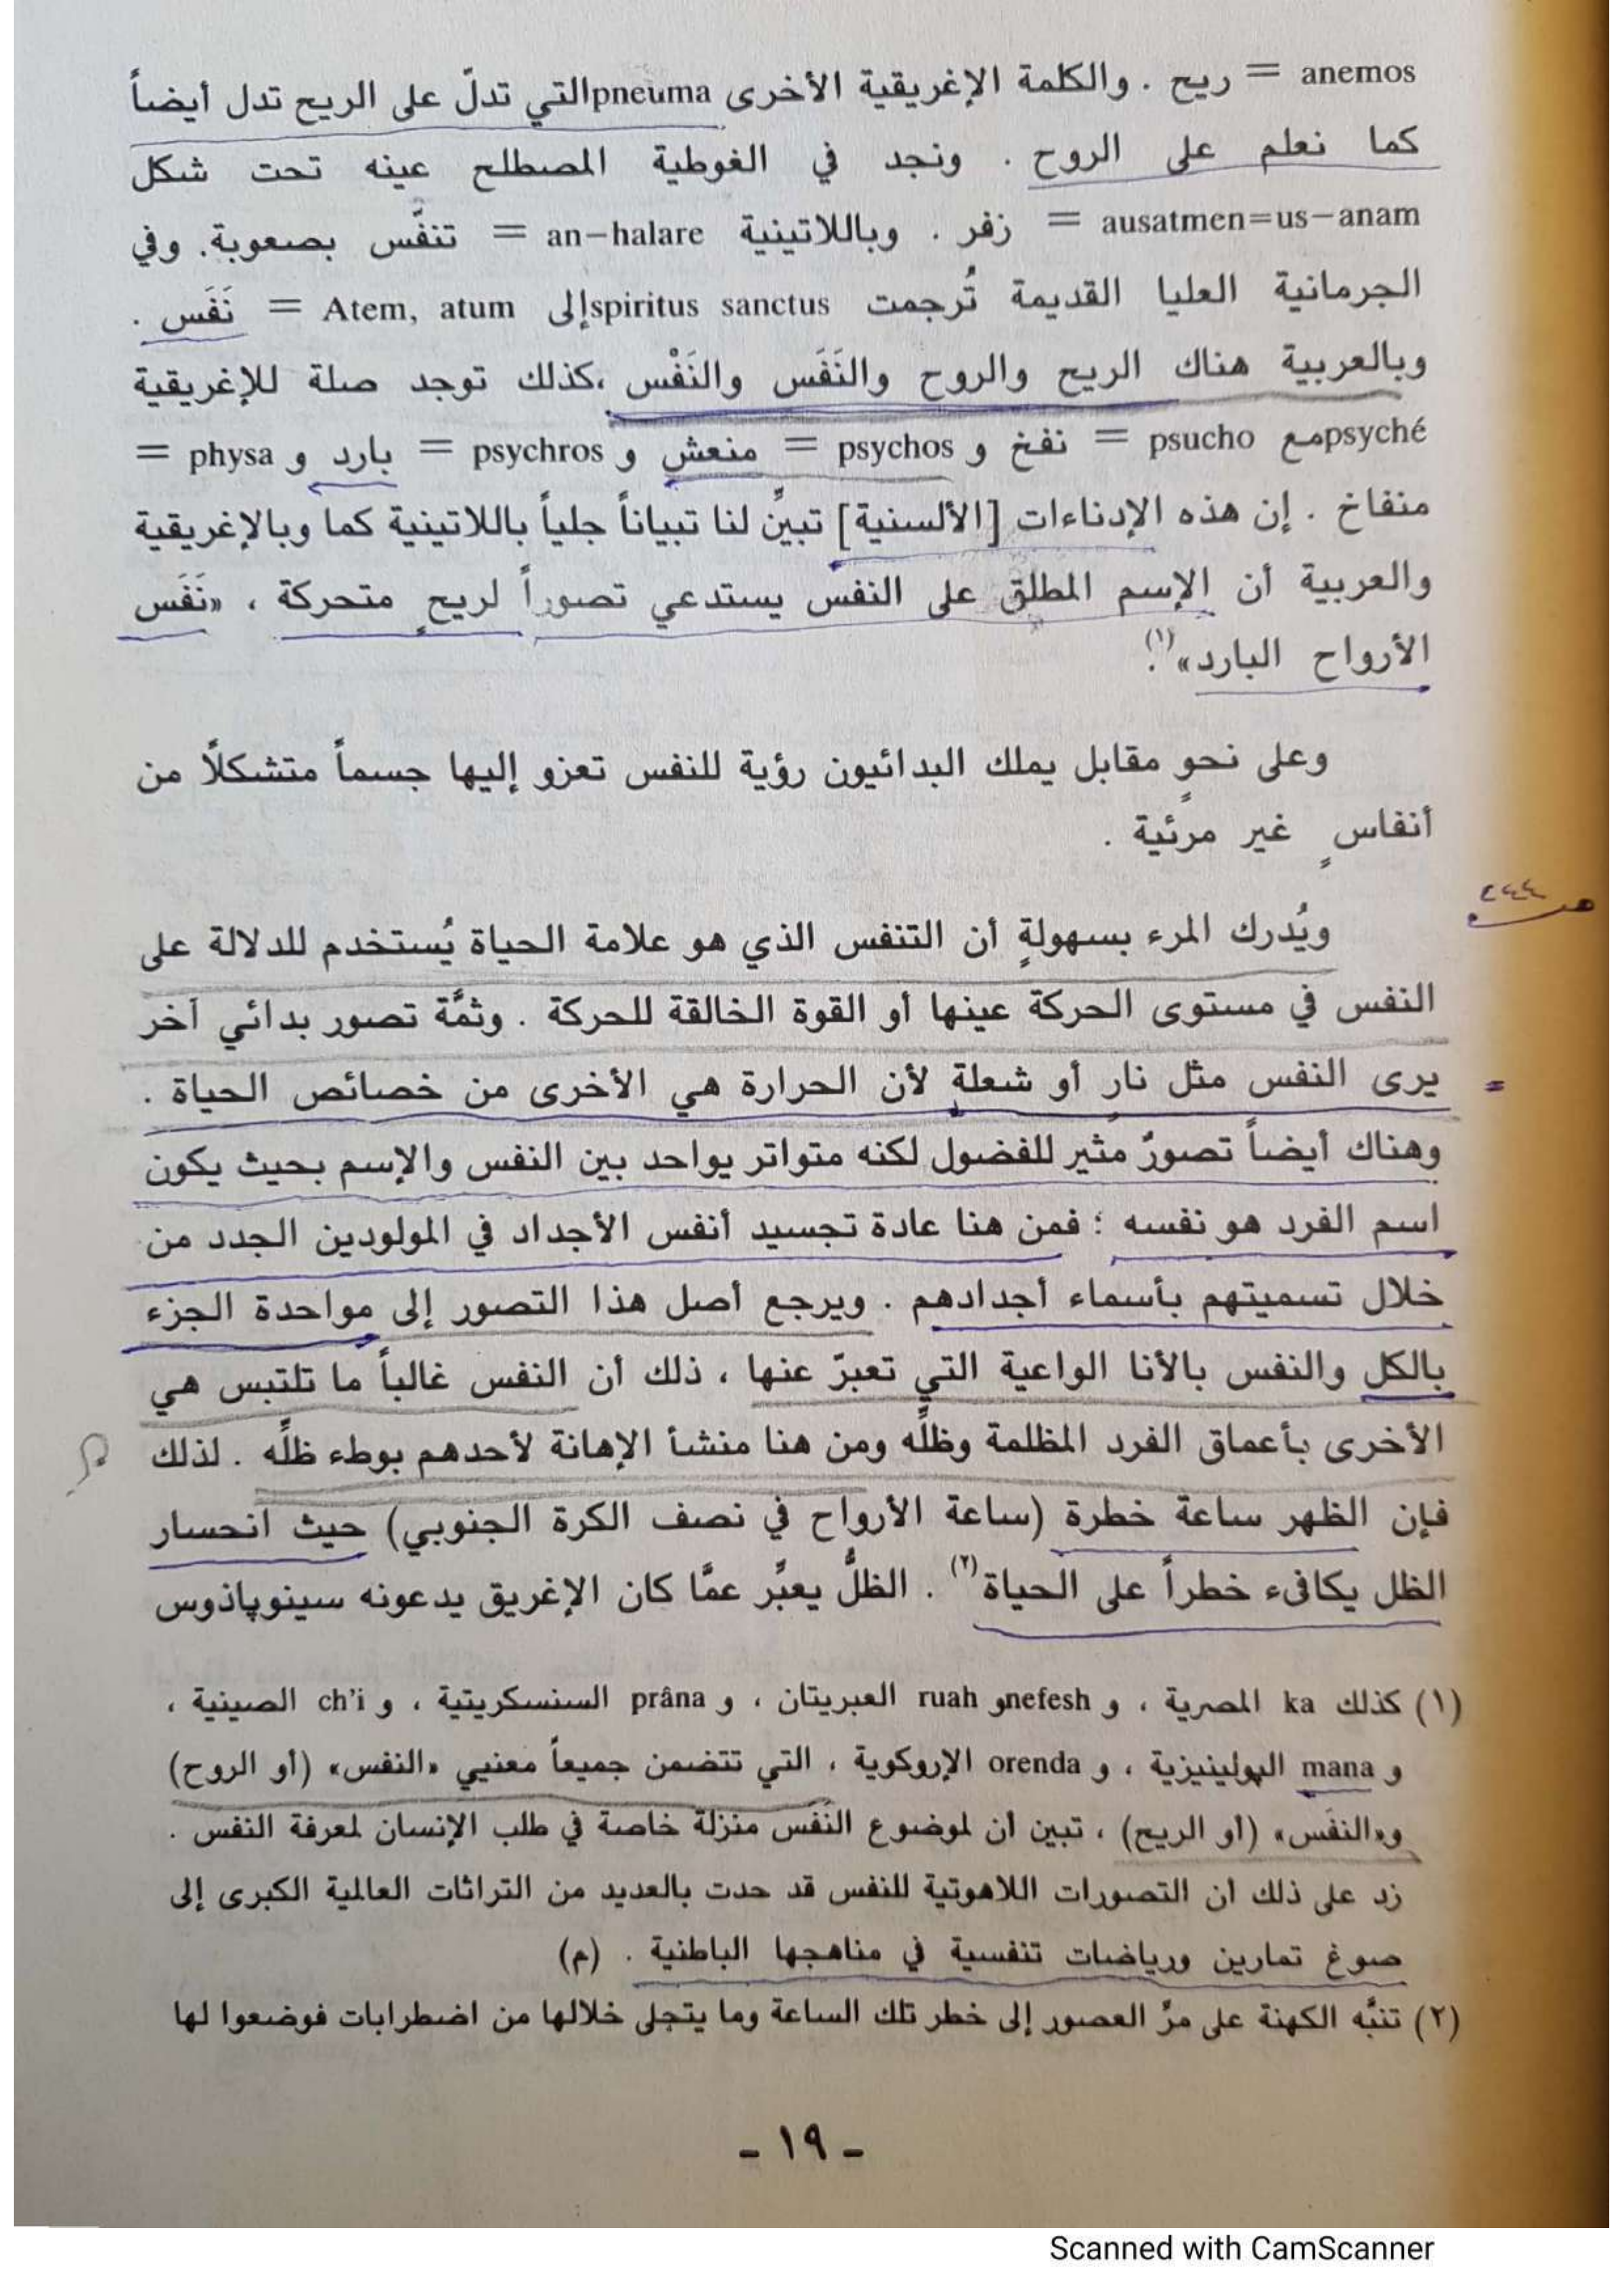 anemos = ريح . والكلمة الإغريقية الأخرى pneumaالتي تدلّ على الريح تدل أيضاً
كما نعلم على الروح . ونجد في الغوطية المصطلح عينه تحت شكل
ausatmen=us-anam = زفر . وباللاتينية an-halare = تنفّس بصعوبة. وفي
الجرمانية العليا القديمة تُرجمت spiritus sanctusإلى Atem, atum = نَفَس .
وبالعربية هناك الريح والروح والنَفَس والنَفْس ،كذلك توجد صلة للإغريقية
psychéمع psucho = نفخ و psychos = منعش و psychros = بارد و physa =
منفاخ . إن هذه الإدناءات [الألسنية] تبينٌ لنا تبياناً جلياً باللاتينية كما وبالإغريقية
والعربية أن الإسم المطلق على النفس يستدعي تصوراً لريحٍ متحركة ، «نَفَس
الأرواح البارد»(١).
وعلى نحوٍ مقابل يملك البدائيون رؤية للنفس تعزو إليها جسماً متشكلًا من
أنفاسٍ غير مرئية .
هـ
ويُدرك المرء بسهولةٍ أن التنفس الذي هو علامة الحياة يُستخدم للدلالة على
النفس في مستوى الحركة عينها أو القوة الخالقة للحركة . وثمَّة تصور بدائي آخر
يرى النفس مثل نار أو شعلة لأن الحرارة هي الأخرى من خصائص الحياة .
وهناك أيضاً تصورٌ مثير للفضول لكنه متواتر يواحد بين النفس والإسم بحيث يكون
اسم الفرد هو نفسه ؛ فمن هنا عادة تجسيد أنفس الأجداد في المولودين الجدد من
خلال تسميتهم بأسماء أجدادهم . ويرجع أصل هذا التصور إلى مواحدة الجزء
بالكل والنفس بالأنا الواعية التي تعبرّ عنها ، ذلك أن النفس غالباً ما تلتبس هي
الأخرى بأعماق الفرد المظلمة وظلِّه ومن هنا منشأ الإهانة لأحدهم بوطء ظلِّه . لذلك
فإن الظهر ساعة خطرة (ساعة الأرواح في نصف الكرة الجنوبي) حيث انحسار
الظل يكافىء خطراً على الحياة(٢) . الظلُّ يعبِّر عمَّا كان الإغريق يدعونه سينوپاذوس
(١) كذلك ka المصرية ، و nefeshو ruah العبريتان ، و prâna السنسكريتية ، و ch'i الصينية ،
و mana الپولينيزية ، و orenda الإروكوية ، التي تتضمن جميعاً معنيي «النفس» (أو الروح)
و«النفَس» (أو الريح) ، تبين أن لموضوع النَفَس منزلة خاصة في طلب الإنسان لمعرفة النفس .
زد على ذلك أن التصورات اللاهوتية للنفس قد حدت بالعديد من التراثات العالمية الكبرى إلى
صوغ تمارين ورياضات تنفسية في مناهجها الباطنية . (م)
(٢) تنبَّه الكهنة على مرِّ العصور إلى خطر تلك الساعة وما يتجلى خلالها من اضطرابات فوضعوا لها
- ١٩ -
Scanned with CamScanner